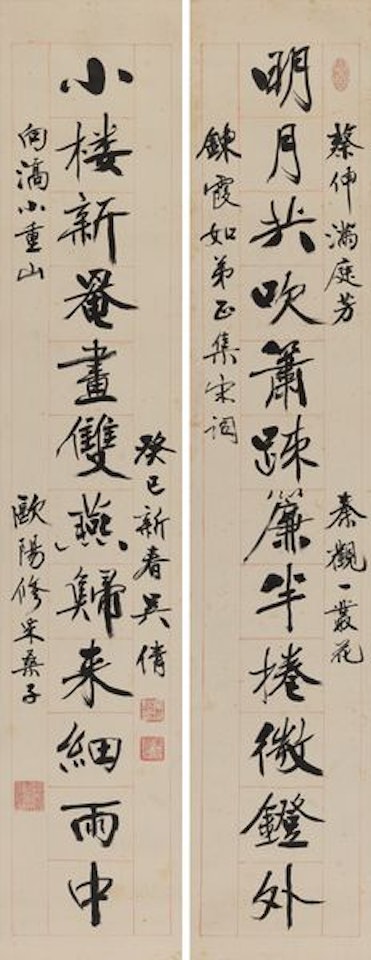 蔡伸滿庭芳
秦觀一叢花
明月共吹簫踈簾半捲微鐙外
鍊霞如弟正集宋詞
癸巳新春吳倩
小楼新罨畫雙燕歸来細雨中
向滈小重山
歐陽修采桑子